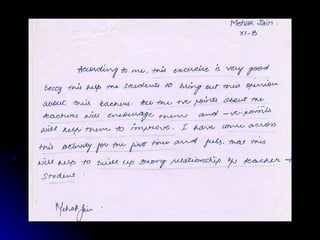 Mehak Jain.
XI-B
According to me, this excercise is very good
becoz this help the students to bring out their opinion
about their teachers. All the +ve points about the
teachers will encourage them and -ve points
will help them to improve. I have come across
this activity for the first time and feels, that this
will help to built up strong relationship b/w teacher +
student.
Mehak Jain.